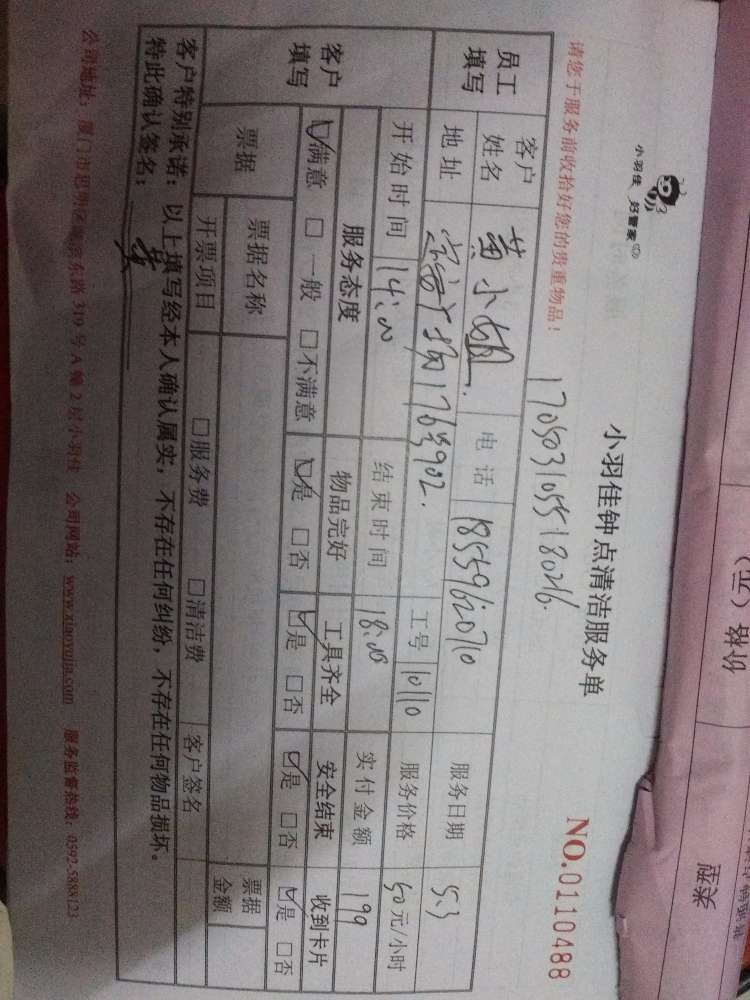 小羽佳 好管家
小羽佳钟点清洁服务单
请您于服务前收拾好您的贵重物品！
1705031055180216.
NO.0110488
员工填写
客户姓名 黄小姐. 电话 18559620710 服务日期 5.3
地址 1763902. 工号 10110 服务价格 50元/小时
客户填写
开始时间 14:00 结束时间 18:00 实付金额 199
服务态度 物品完好 工具齐全 安全结束 收到卡片
☑满意 □一般 □不满意 ☑是 □否 ☑是 □否 ☑是 □否 ☑是 □否
票据 票据名称 票据金额
开票项目 □服务费 □清洁费 客户签名
客户特别承诺：以上填写经本人确认属实，不存在任何纠纷，不存在任何物品损坏。
特此确认签名： 黄
公司地址：厦门市思明区湖滨东路 319 号 A 幢 2 层小羽佳 公司网站：www.xiaoyujia.com 服务监督热线：0592-5888123